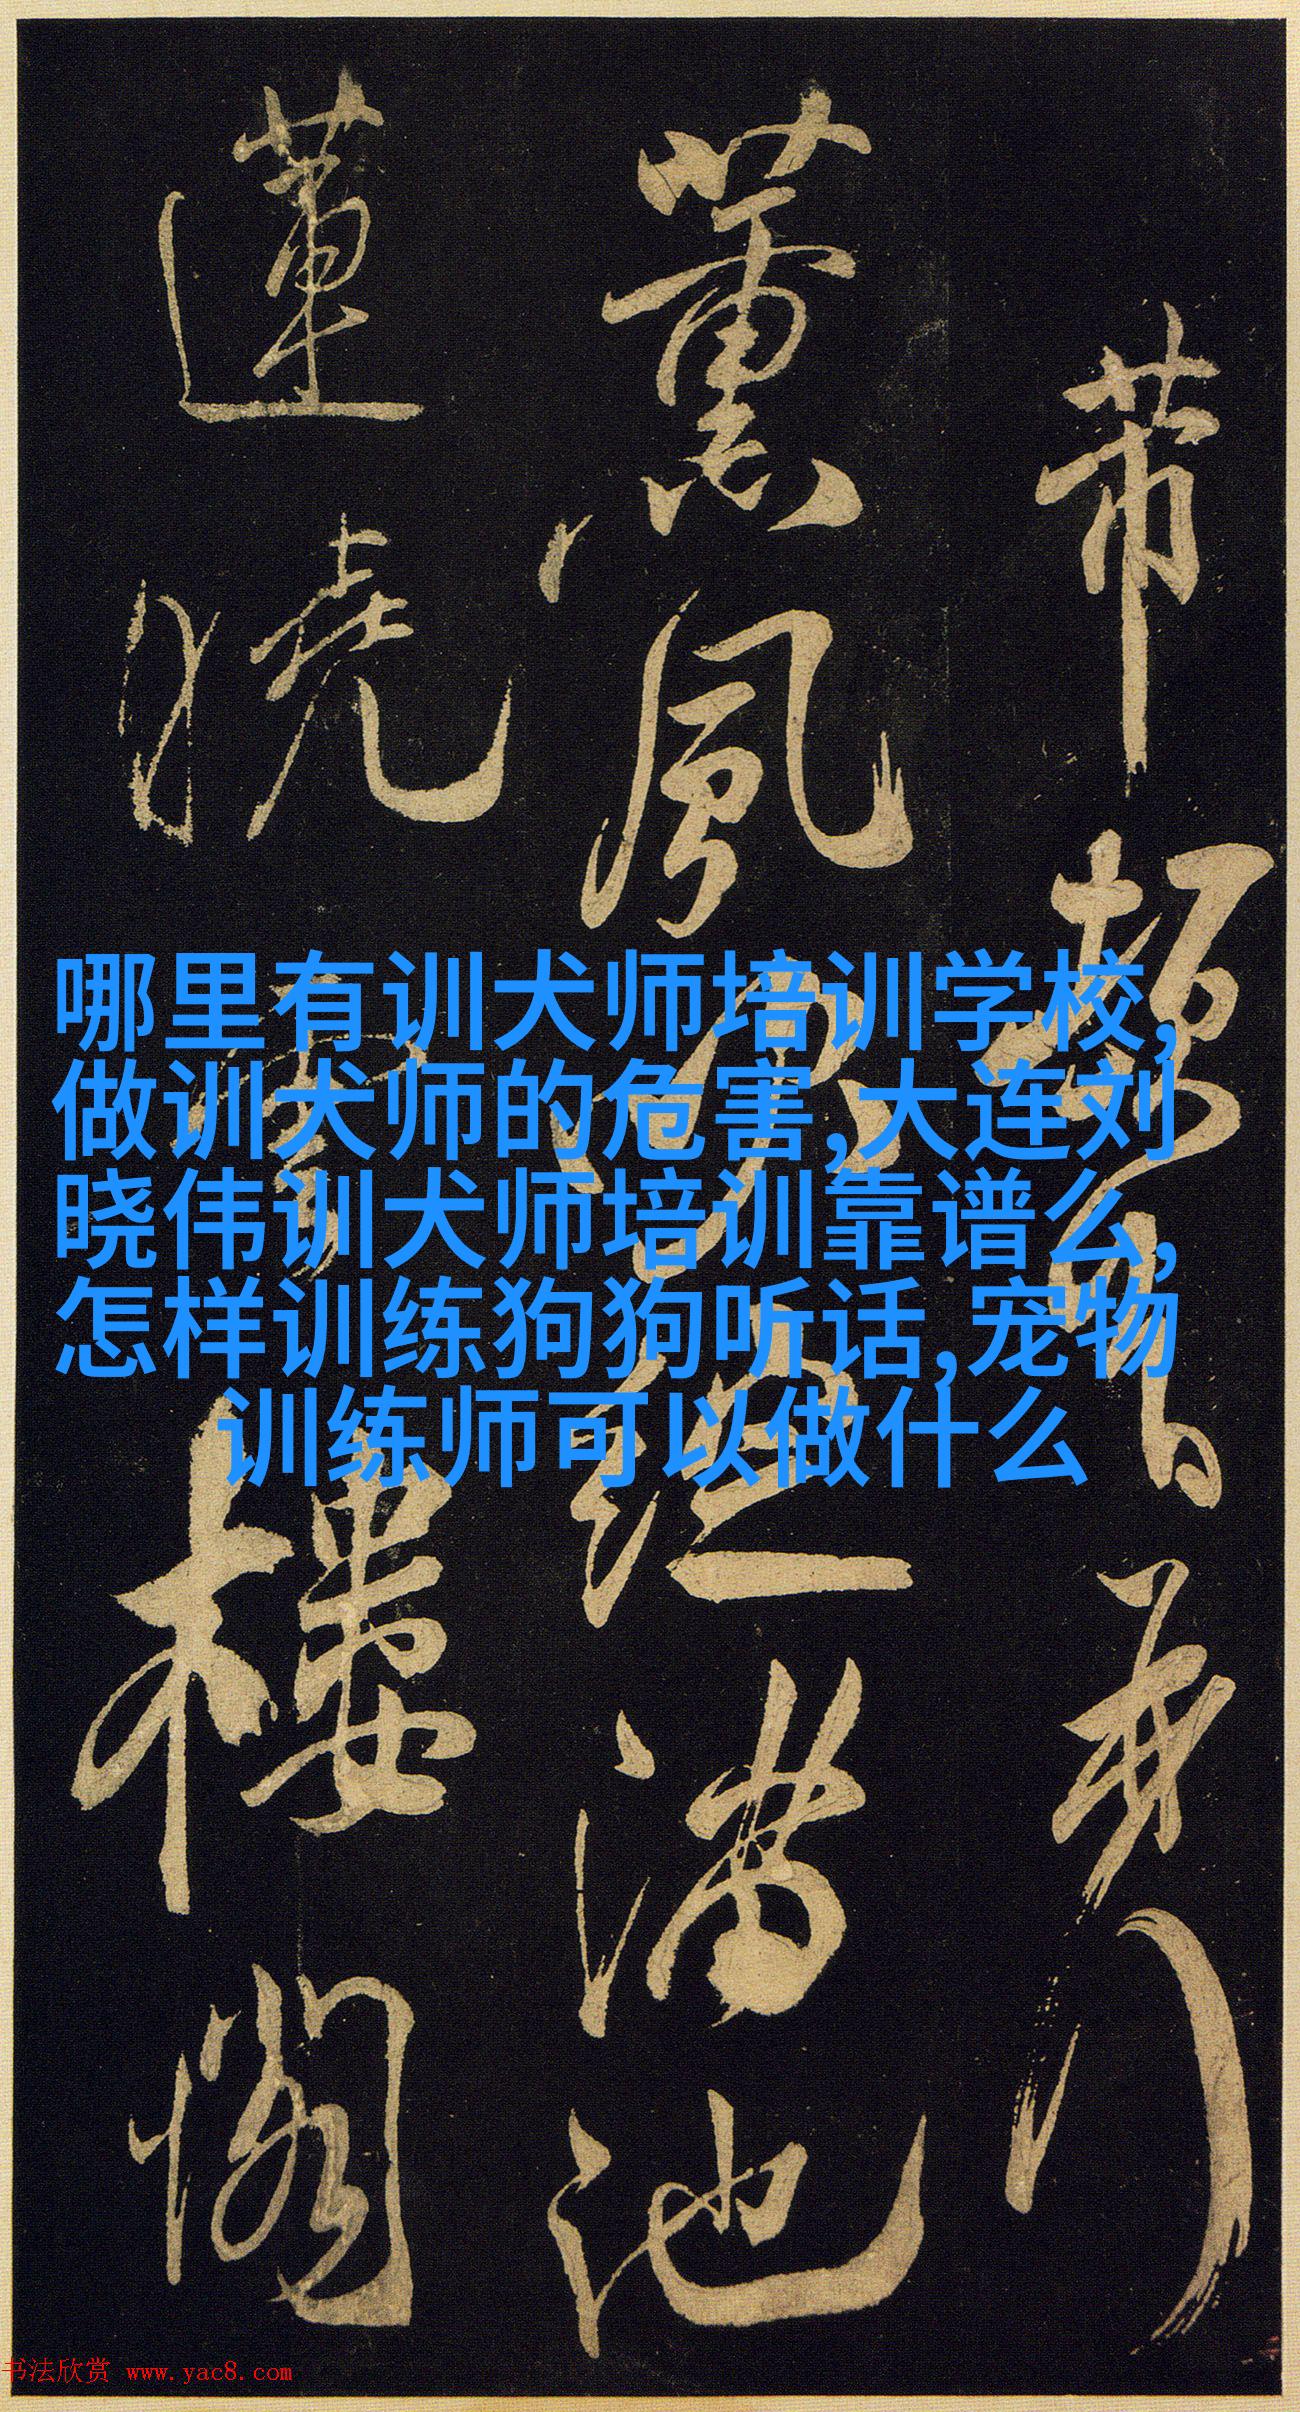 薰風滿池
蓮曉樓閣
哪里有训犬师培训学校,
做训犬师的危害,大连刘
晓伟训犬师培训靠谱么,
怎样训练狗狗听话,宠物
训练师可以做什么
书法欣赏 www.yac8.com